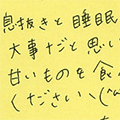 息抜きと睡眠
大事だと思い
甘いものを食
ください、(^ω